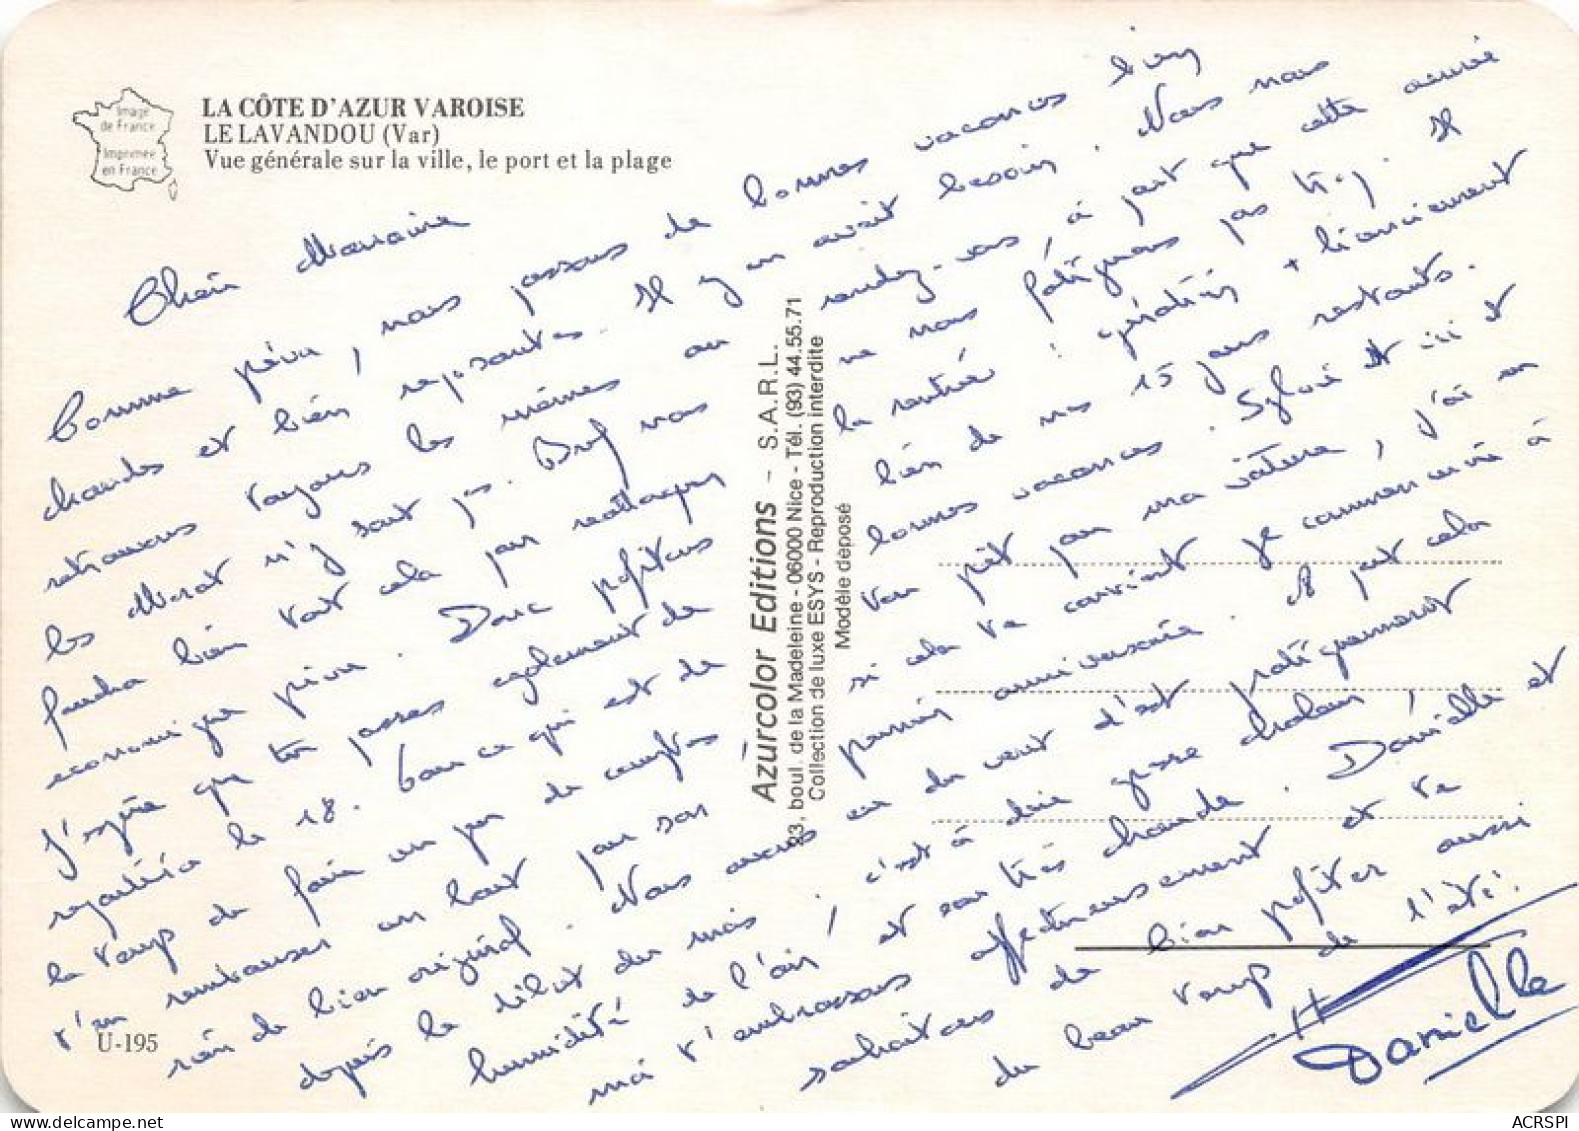 Image
de France
Imprimée
en France
LA CÔTE D'AZUR VAROISE
LE LAVANDOU (Var)
Vue générale sur la ville, le port et la plage
Marraine
Comme prévu, nous passons de bonnes vacances bien
chaudes et bien reposantes. Il y en avait besoin. Nous nous
retrouvons toujours les mêmes au rendez-vous, à part que cette année
les Morat n'y sont pas. Bref nous ne nous fatiguons pas trop. Il
faudra bien tout cela pour réattaquer la rentrée :
économique prévu. Donc profitons bien de nos 15 jours restants.
J'espère que tu passes également de bonnes vacances. Sylvie et
la 18. Pour ce qui est de ton prêt pour ma voiture, j'ai en
le temps de faire un peu de comptes si cela te convient je commencerai à
t'en rembourser un bout pour son anniversaire. Il peut cela
rien de bien original. Nous avons eu du vent d'est pratiquement
depuis le début du mois, c'est à dire grosse chaleur,
humidité de l'air et eau très chaude. Danielle et
moi t'embrassons affectueusement et te
souhaitons de bien profiter aussi
du beau temps de l'été.
Danielle
U-195
Azurcolor Editions - S.A.R.L.
33, boul. de la Madeleine - 06000 Nice - Tél. (93) 44.55.71
Collection de luxe ESYS - Reproduction interdite
Modèle déposé
ACRSPI